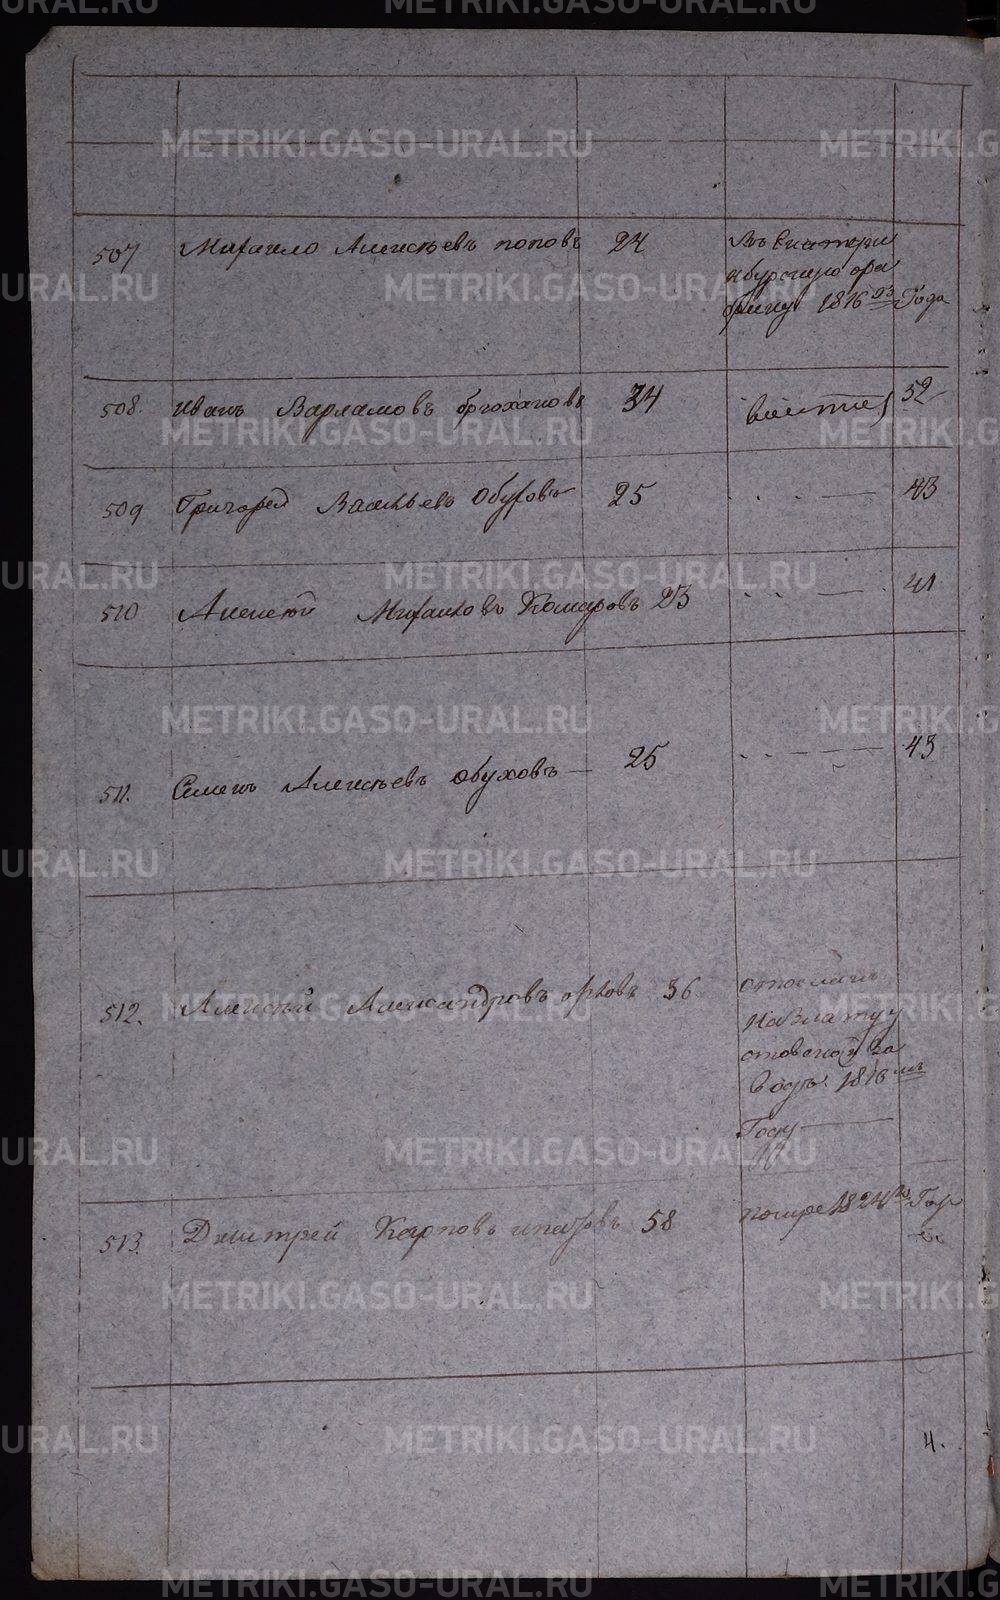 507 Михайло Алексѣевъ поповъ 24 Въ Екатерин
бургскую фа
брику 1816го Года
508. Иванъ Варламовъ брюхановъ 34 52
509 Григорей Васильевъ Обуховъ 25 43
510 Алексей Михайловъ Комаровъ 23 41
511. Семенъ Алексѣевъ Обуховъ 25 43
512. Алексѣй Александровъ орловъ 36 отосланъ
на Златоу
стовской за
водъ 1816мъ
Году
513. Дмитрей Карповъ ипатовъ 58 помре 1824го Го
да
4.
METRIKI.GASO-URAL.RU